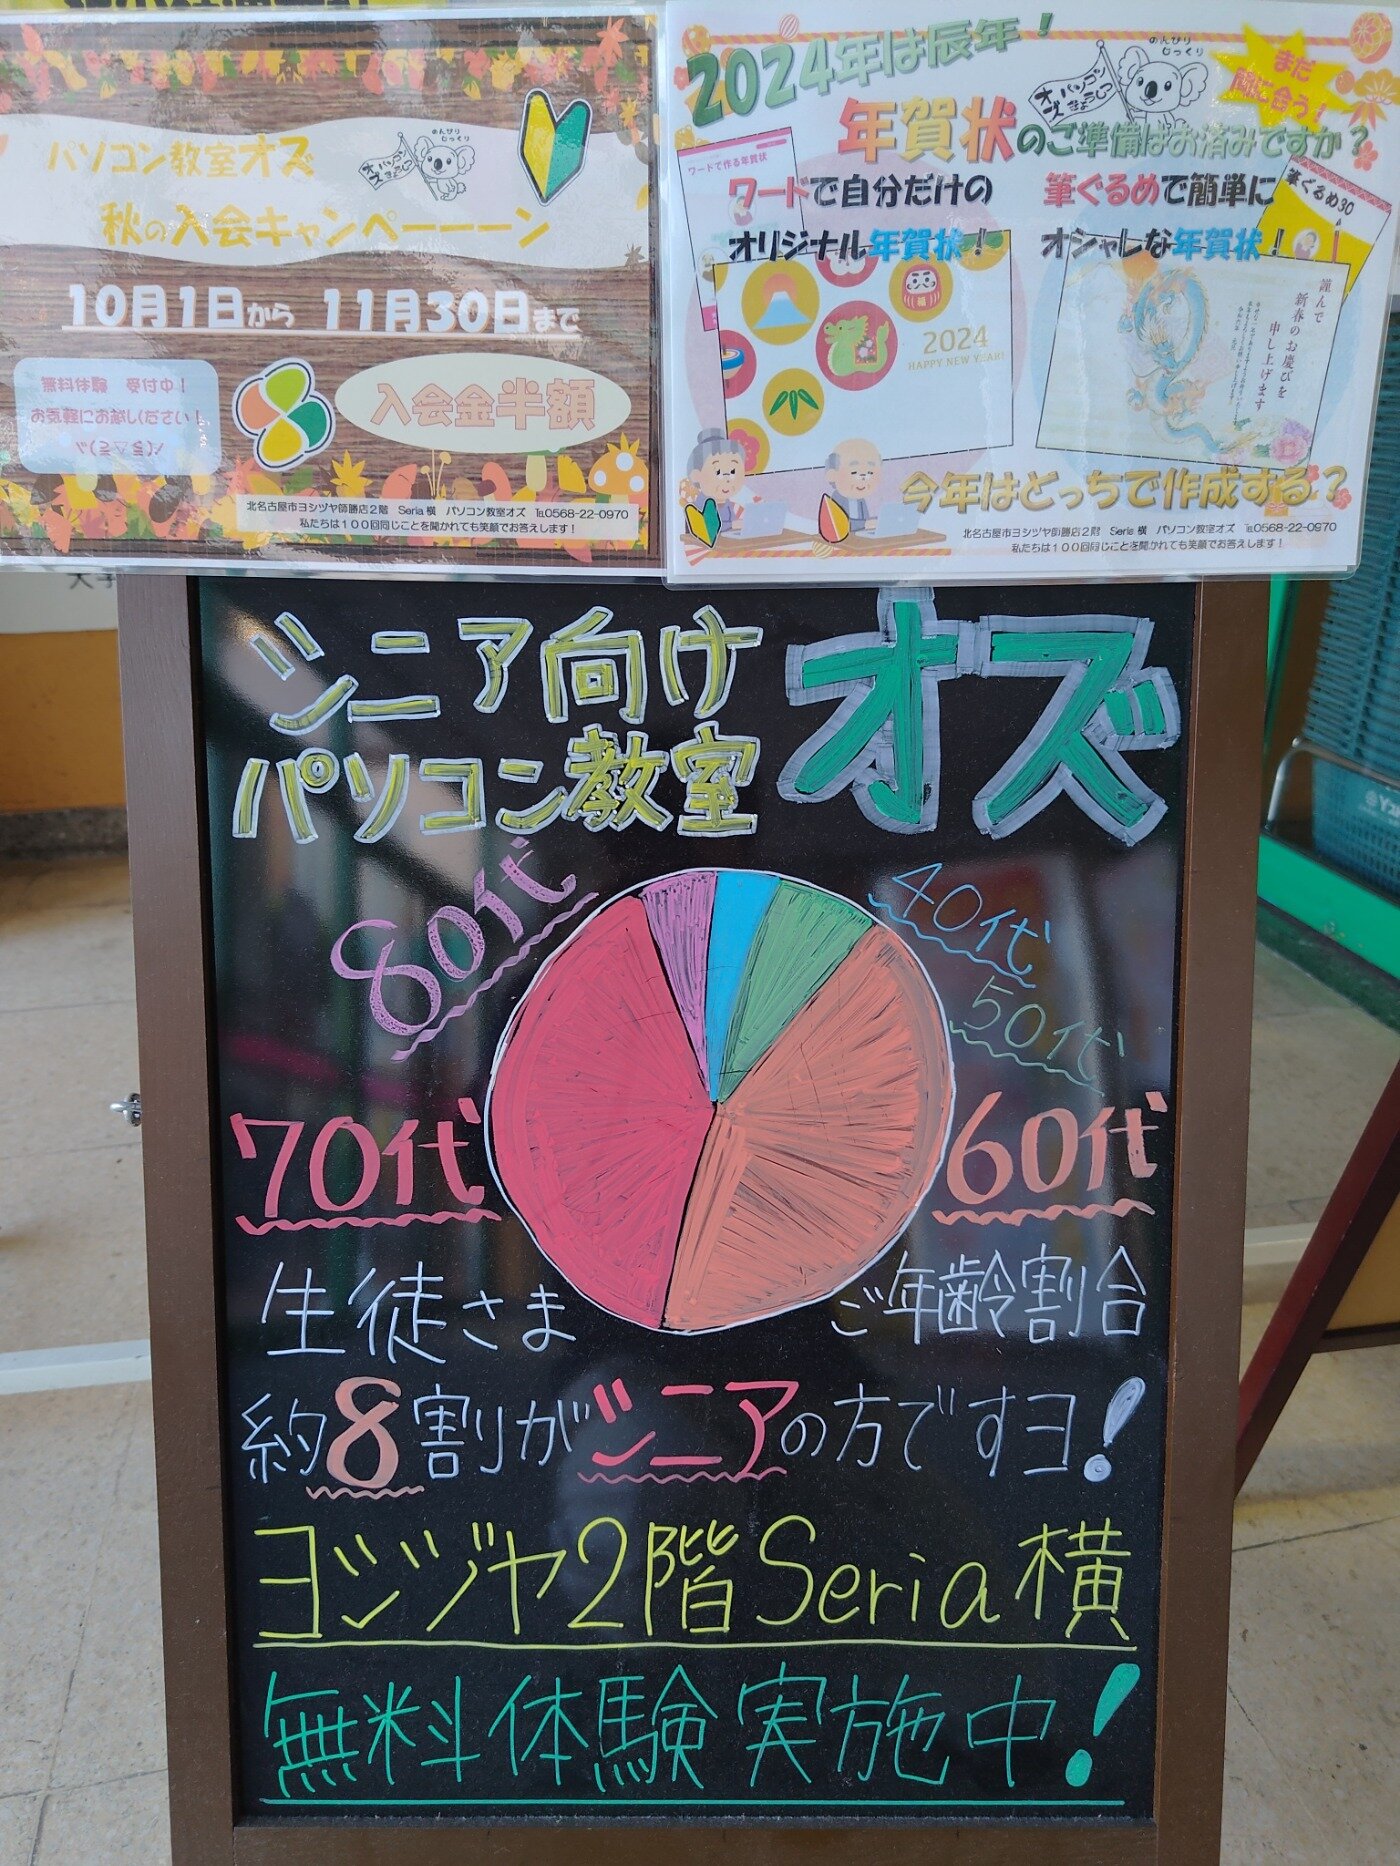 パソコン教室オズ
のんびり
じっくり
オズ パソコン きょうしつ
秋の入会キャンペーーーン
10月1日から 11月30日まで
無料体験 受付中！
お気軽にお越しください！
入会金半額
北名古屋市ヨシヅヤ師勝店２階 Seria 横 パソコン教室オズ ℡0568-22-0970
私たちは１００回同じことを聞かれても笑顔でお答えします！
2024年は辰年！
のんびり
じっくり
オズ パソコン きょうしつ
まだ
間に合う！
年賀状のご準備はお済みですか？
ワードで作る年賀状
ワードで自分だけの
オリジナル年賀状！
筆ぐるめで簡単に
オシャレな年賀状！
筆ぐるめ30
福
2024
HAPPY NEW YEAR!
謹んで
新春のお慶びを
申し上げます
今年はどっちで作成する？
北名古屋市ヨシヅヤ師勝店２階 Seria 横 パソコン教室オズ ℡0568-22-0970
私たちは１００回同じことを聞かれても笑顔でお答えします！
シニア向け
パソコン教室
オズ
80代
40代
50代
70代
60代
生徒さま
ご年齢割合
約8割がシニアの方ですヨ！
ヨシヅヤ2階Seria横
無料体験実施中！